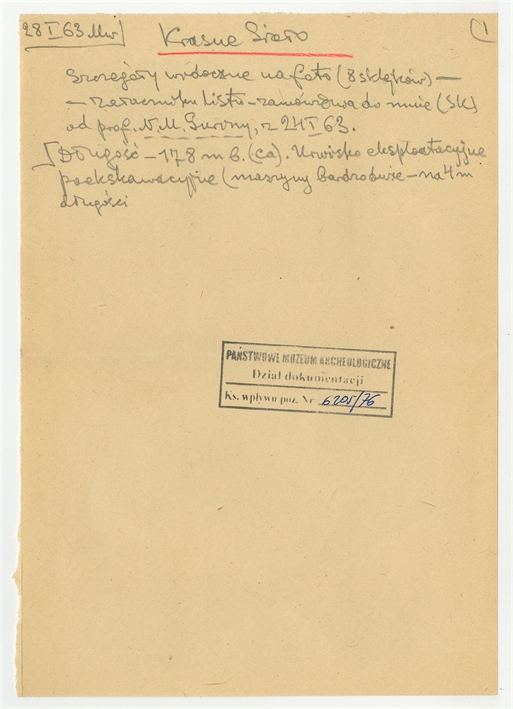 28 I 63 Mw
1
Krasne Sioło
Szczegóły widoczne na foto (8 sklejków) —
— załączniku listu – do mnie (SK)
od prof. N. M. Guriny, z 24 I 63.
Długość – 178 m b. (ca). Urwisko eksploatacyjne
poekskawacyjne (maszyny bardzo duże – na 4 m
długości
PAŃSTWOWE MUZEUM ARCHEOLOGICZNE
Dział dokumentacji
Ks. wpływu poz. Nr 6205/76